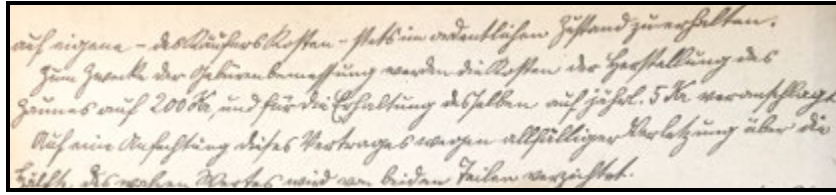 auf eigene – des Käufers Kosten – stets im ordentlichen Zustand zu erhalten.
Zum Zwecke der Gebürenbemessung werden die Kosten der Herstellung des
Zaunes auf 200 Kr, und für die Erhaltung desselben auf jährl. 5 Kr veranschlagt.
Auf eine Anfechtung dieses Vertrages wegen allfälliger Verletzung über die
Hälfte des wahren Wertes wird von beiden Teilen verzichtet.